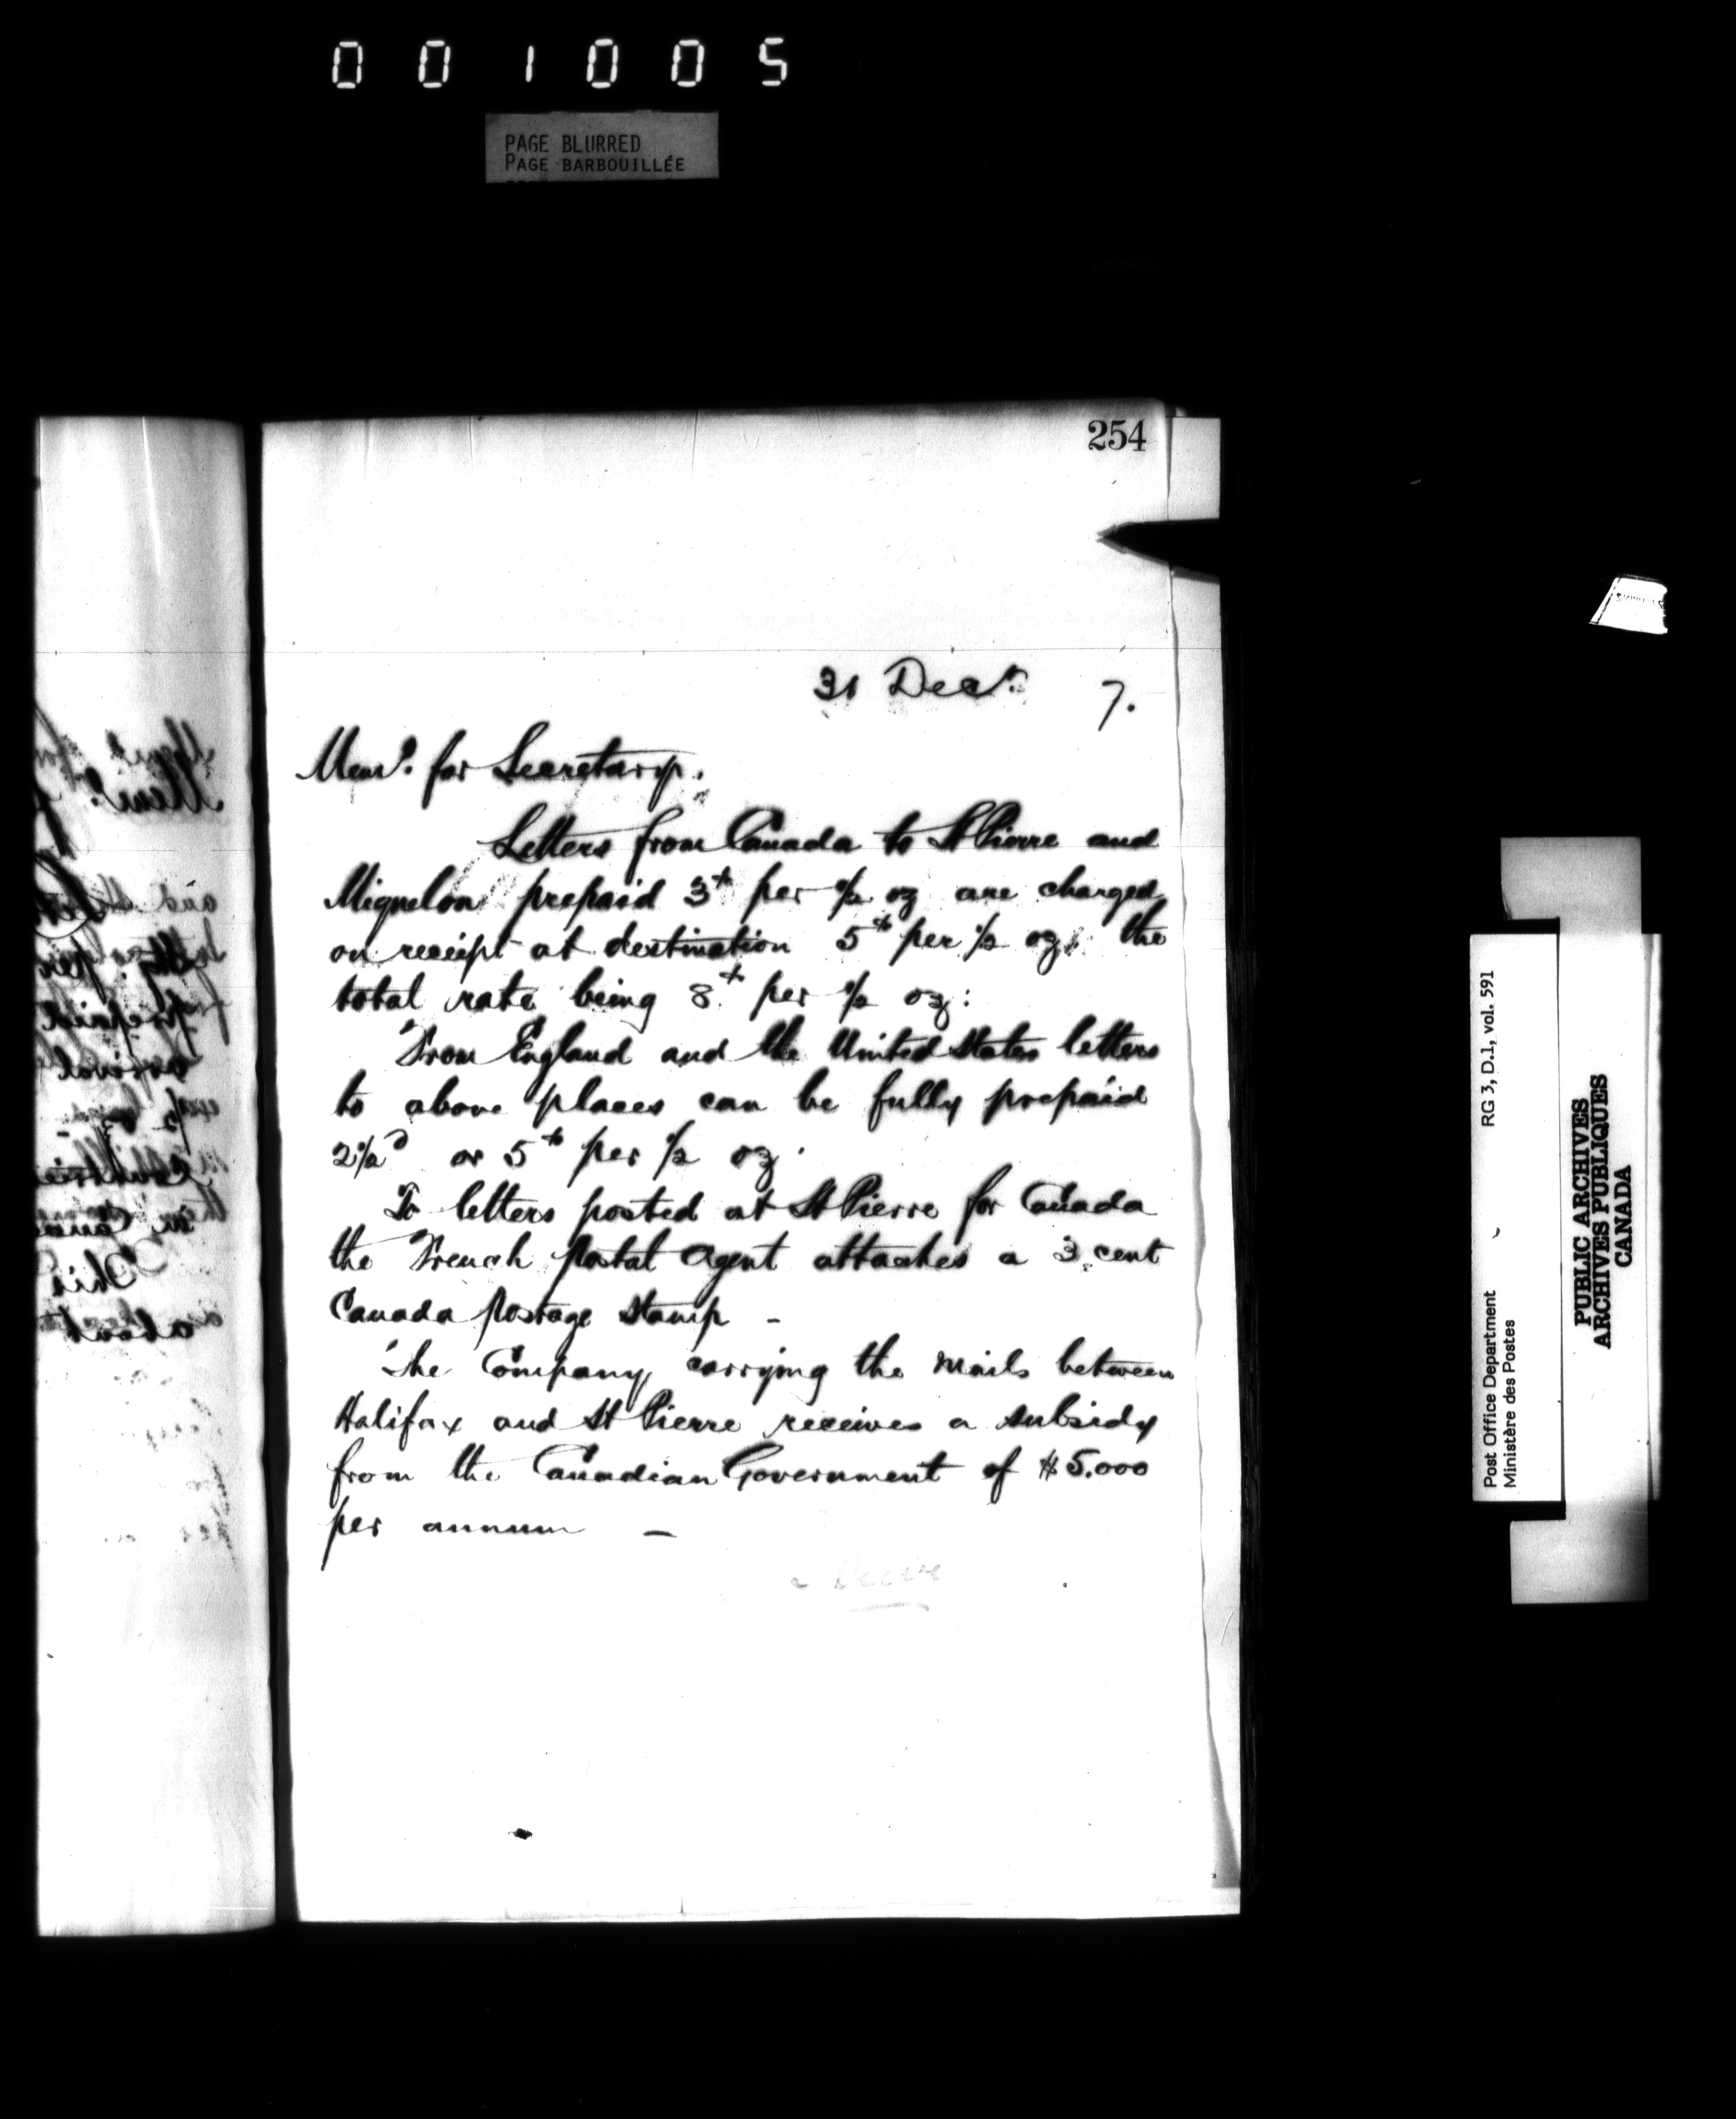 001005
PAGE BLURRED
PAGE BARBOUILLÉE
254
31 Decr. 7.
Memo. for Secretary.
Letters from Canada to St Pierre and
Miquelon prepaid 3cts per 1/2 oz are charged
on receipt at destination 5cts per 1/2 oz: the
total rate being 8cts per 1/2 oz:
From England and the United States letters
to above places can be fully prepaid
2 1/2d or 5cts per 1/2 oz.
To letters posted at St Pierre for Canada
the French Postal Agent attaches a 3 cent
Canada Postage Stamp -
The Company carrying the Mails between
Halifax and St Pierre receives a subsidy
from the Canadian Government of $5.000
per annum -
RG 3, D.1, vol. 591
Post Office Department
Ministère des Postes
PUBLIC ARCHIVES
ARCHIVES PUBLIQUES
CANADA